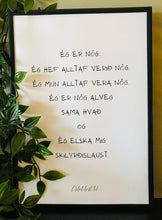 ÉG ER NÓG.
ÉG HEF ALLTAF VERIÐ NÓG.
ÉG MUN ALLTAF VERA NÓG.
ÉG ER NÓG ALVEG
SAMA HVAÐ
OG
ÉG ELSKA MIG
SKILYRÐISLAUST.